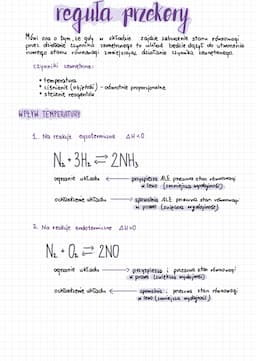 reguła przekory
Mówi ona o tym, że gdy w układzie zajdzie zaburzenie stanu równowagi
przez działanie czynnika zewnętrznego to układ będzie dążył do utworzenia
nowego stanu równowagi zmniejszając działanie czynnika zewnętrznego.
czynniki zewnętrzne:
• temperatura
• ciśnienie (objętość) - odwrotnie proporcjonalne
• stężenie reagentów
WPŁYW TEMPERATURY
1. Na reakcje egzotermiczne ΔH<0
N₂ + 3H₂ ⇄ 2NH₃
ogrzanie układu ← przyspiesza ALE przesuwa stan równowagi
w lewo (zmniejsza wydajność)
ochłodzenie układu → spowalnia ALE przesuwa stan równowagi
w prawo (zwiększa wydajność)
2. Na reakcje endotermiczne ΔH>0
N₂ + O₂ ⇄ 2NO
ogrzanie układu → przyspiesza i przesuwa stan równowagi
w prawo (zwiększa wydajność)
ochłodzenie układu ← spowalnia i przesuwa stan równowagi
w lewo (zmniejsza wydajność)